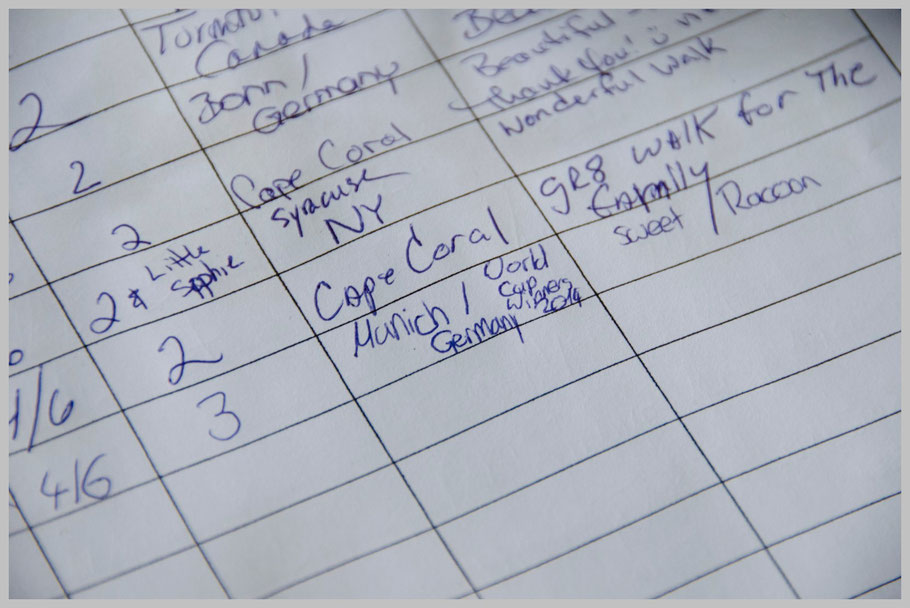 Canada
2
Bonn /
Germany
Beautiful -
Thank You! ü
2
Cape Coral
Wonderful Walk
2
Syracuse
NY
gR8 WALK for The
FAMIlly
2 & Little
Sophie
Cape Coral
sweet / Raccoon
2
Munich /
Germany
World
Cup
Winners
2014
/6
3
4/6